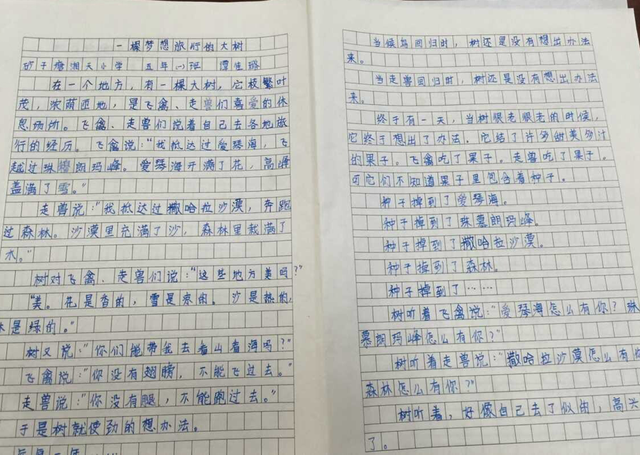 一棵梦想旅行的大树
五年一班
在一个地方，有一棵大树，它枝繁叶
茂，浓荫匝地，是飞禽、走兽们喜爱的休
息场所。飞禽、走兽们说着自己去各地旅
行的经历。飞禽说：“我抵达过爱琴海，飞
越过珠穆朗玛峰。爱琴海开满了花，高峰
盖满了雪。”
走兽说：“我抵达过撒哈拉沙漠，奔跑
过森林。沙漠里充满了沙，森林里栽满了
木。”
树对飞禽、走兽们说：“这些地方美吗？”
“美。花是香的，雪是凉的。沙是热的，
是绿的。”
树又说：“你们能带我去看山看海吗？”
飞禽说：“你没有翅膀，不能飞过去。”
走兽说：“你没有腿，不能跑过去。”
于是树就使劲的想办法。
一年……
当候鸟回归时，树还是没有想出办法
来。
当走兽回归时，树还是没有想出办法
来。
终于有一天，当树很老很老的时候，
它终于想出了办法。它结了许多甜美多汁
的果子。飞禽吃了果子。走兽吃了果子。
可它们不知道果子里包含着种子。
种子掉到了爱琴海。
种子掉到了珠慕朗玛峰。
种子掉到了撒哈拉沙漠。
种子掉到了森林。
种子掉到了……
树听着飞禽说：“爱琴海怎么有你？珠
慕朗玛峰怎么有你？”
树听着走兽说：“撒哈拉沙漠怎么有你
森林怎么有你？”
树听着，好像自己去了似的，高兴
了。